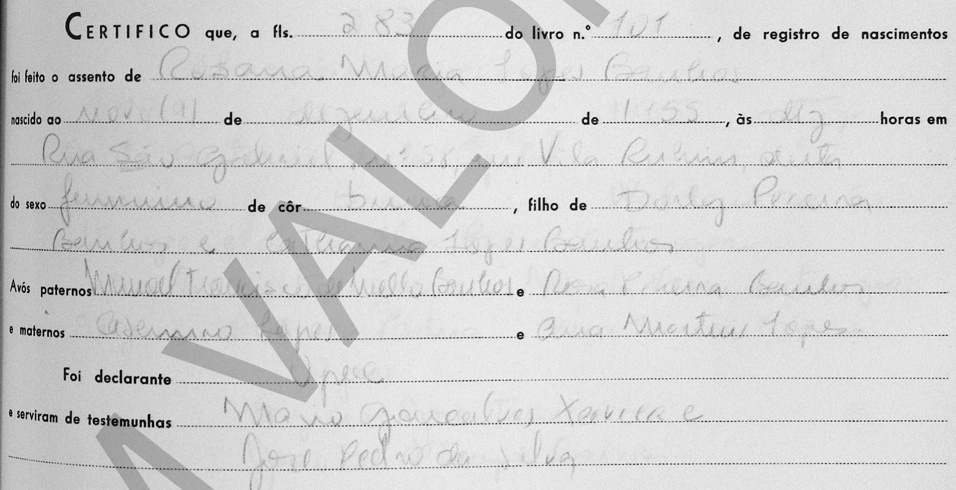 CERTIFICO que, a fls. 283 do livro n.º 101, de registro de nascimentos
foi feito o assento de Rosana Maria Lopes Banhos
nascido ao nove (9) de dezembro de 1955, às dez horas em
Rua São Gabriel, nº 58, em Vila Rubim, desta
do sexo feminino de côr, filho de Darly Pereira
Banhos e Catharina Lopes Banhos
Avós paternos Manoel Francisco de Mello Banhos e Rosa Pereira Banhos
e maternos Lopes e Ana Martins Lopes
Foi declarante O pae
e serviram de testemunhas Mario Gonçalves Xavier e
José Pedro da Silva
VALOR
M